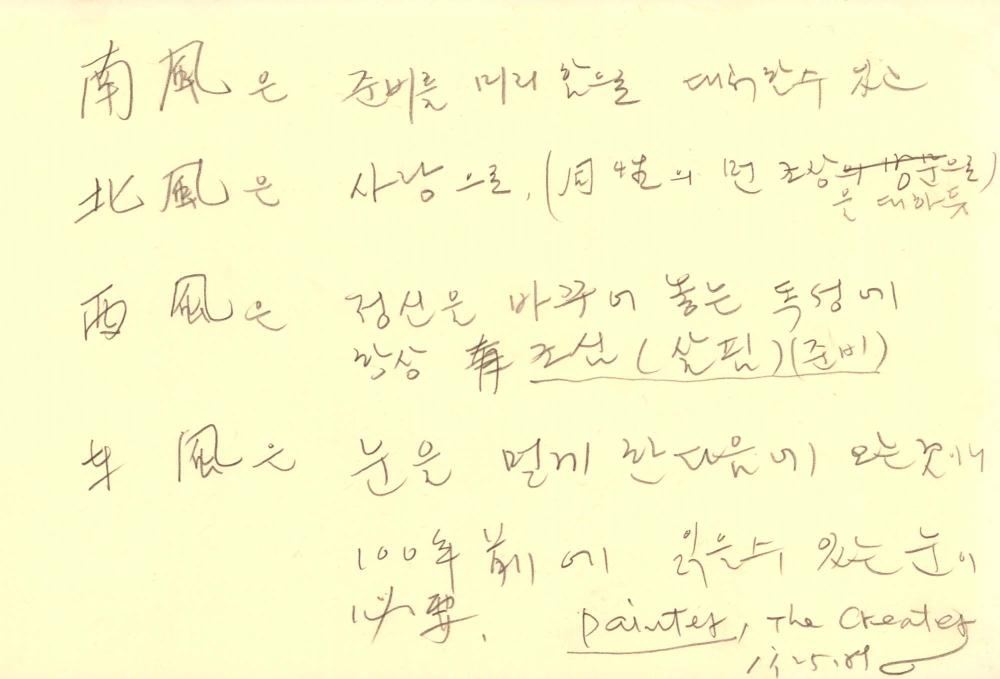 南風은 준비를 미리 함으로 대처할수 있고
北風은 사랑으로, (同性의 먼 조상의 방문으로)
을 대하듯
西風은 정신을 바꾸어 놓는 독성에
항상 有 조심 (살핌) (준비)
風은 눈을 멀게 한다음에 오는것이니
100年 前에 읽을수 있는 눈이
必要.
painter, The Creater